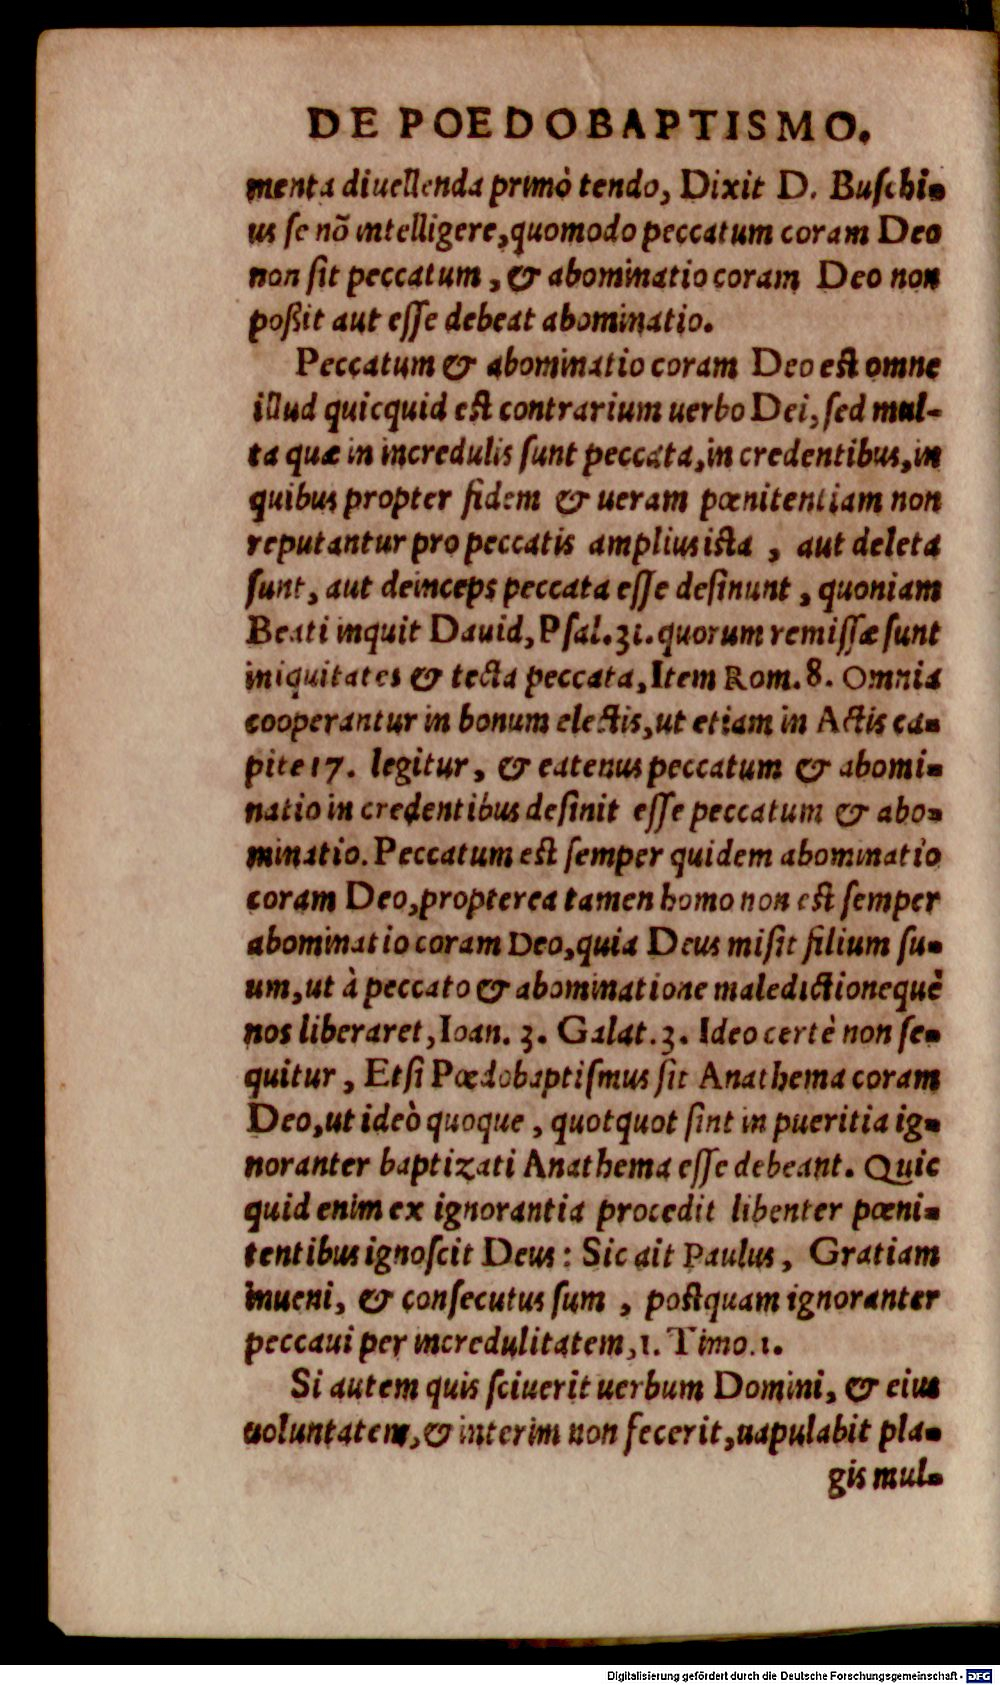 DE POEDOBAPTISMO.
menta diuellenda primò tendo, Dixit D. Buſchi-
us ſe nõ intelligere, quomodo peccatum coram Deo
non ſit peccatum, & abominatio coram Deo non
poßit aut eſſe debeat abominatio.
Peccatum & abominatio coram Deo est omne
illud quicquid est contrarium uerbo Dei, ſed mul-
ta quæ in incredulis ſunt peccata, in credentibus, in
quibus propter fidem & ueram pœnitentiam non
reputantur pro peccatis amplius ista, aut deleta
ſunt, aut deinceps peccata eſſe deſinunt, quoniam
Beati inquit Dauid, Pſal. 31. quorum remiſſæ ſunt
iniquitates & tecta peccata, Item Rom. 8. Omnia
cooperantur in bonum electis, ut etiam in Actis ca-
pite 17. legitur, & eatenus peccatum & abomi-
natio in credentibus deſinit eſſe peccatum & abo-
minatio. Peccatum est ſemper quidem abominatio
coram Deo, propterea tamen homo non est ſemper
abominatio coram Deo, quia Deus miſit filium ſu-
um, ut à peccato & abominatione maledictionequè
nos liberaret, Ioan. 3. Galat. 3. Ideo certè non ſe-
quitur, Etſi Pœdobaptiſmus ſit Anathema coram
Deo, ut ideò quoque, quotquot ſint in pueritia ig-
noranter baptizati Anathema eſſe debeant. Quic
quid enim ex ignorantia procedit libenter pœni-
tentibus ignoſcit Deus: Sic ait Paulus, Gratiam
inueni, & conſecutus ſum, postquam ignoranter
peccaui per incredulitatem, 1. Timo. 1.
Si autem quis ſciuerit uerbum Domini, & eius
uoluntatem, & interim non fecerit, uapulabit pla-
gis mul-
Digitalisierung gefördert durch die Deutsche Forschungsgemeinschaft - DFG